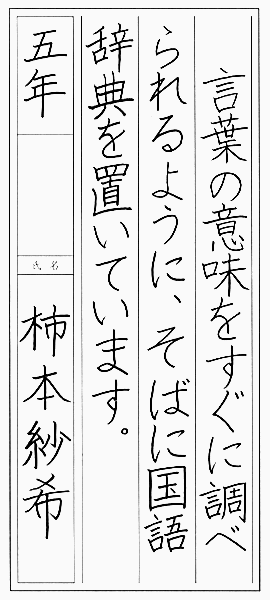 言葉の意味をすぐに調べ
られるように、そばに国語
辞典を置いています。
五年
氏名
柿本紗希